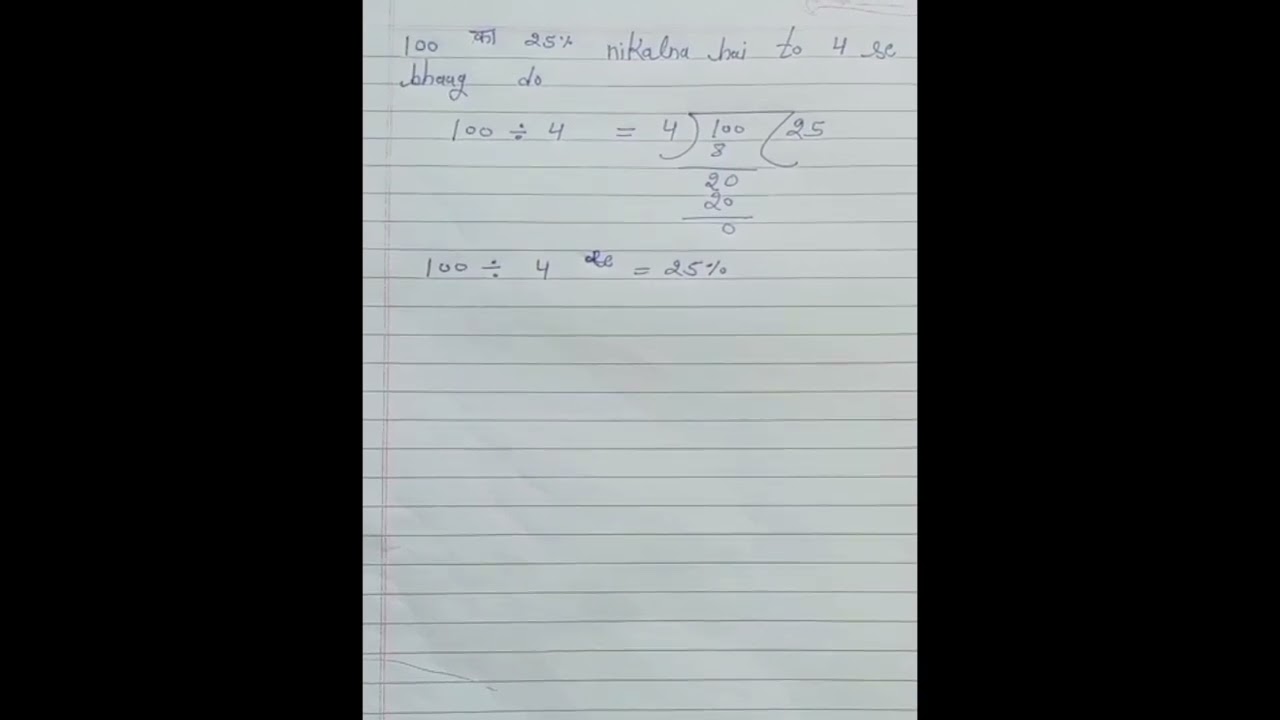 100 का 25% nikalna hai to 4 se
bhaag do
100 ÷ 4 = 4) 100 ( 25
8
20
20
0
100 ÷ 4 se = 25%